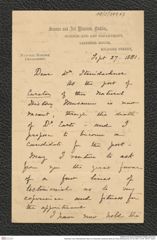 Science and Art Museum, Dublin,
SCIENCE AND ART DEPARTMENT,
LEINSTER HOUSE,
KILDARE STREET,
Sept 27. 1881
Dear Dr Steindachner
As the post of
Curator of this Natural
History Museum is now
vacant, through the death
of Dr Carte - and I
propose to become a
Candidate for the post -
May I venture to ask
from you the great favour
of a few lines of
testimonial as to my
experience and fitness for
the appointment
I have now held the